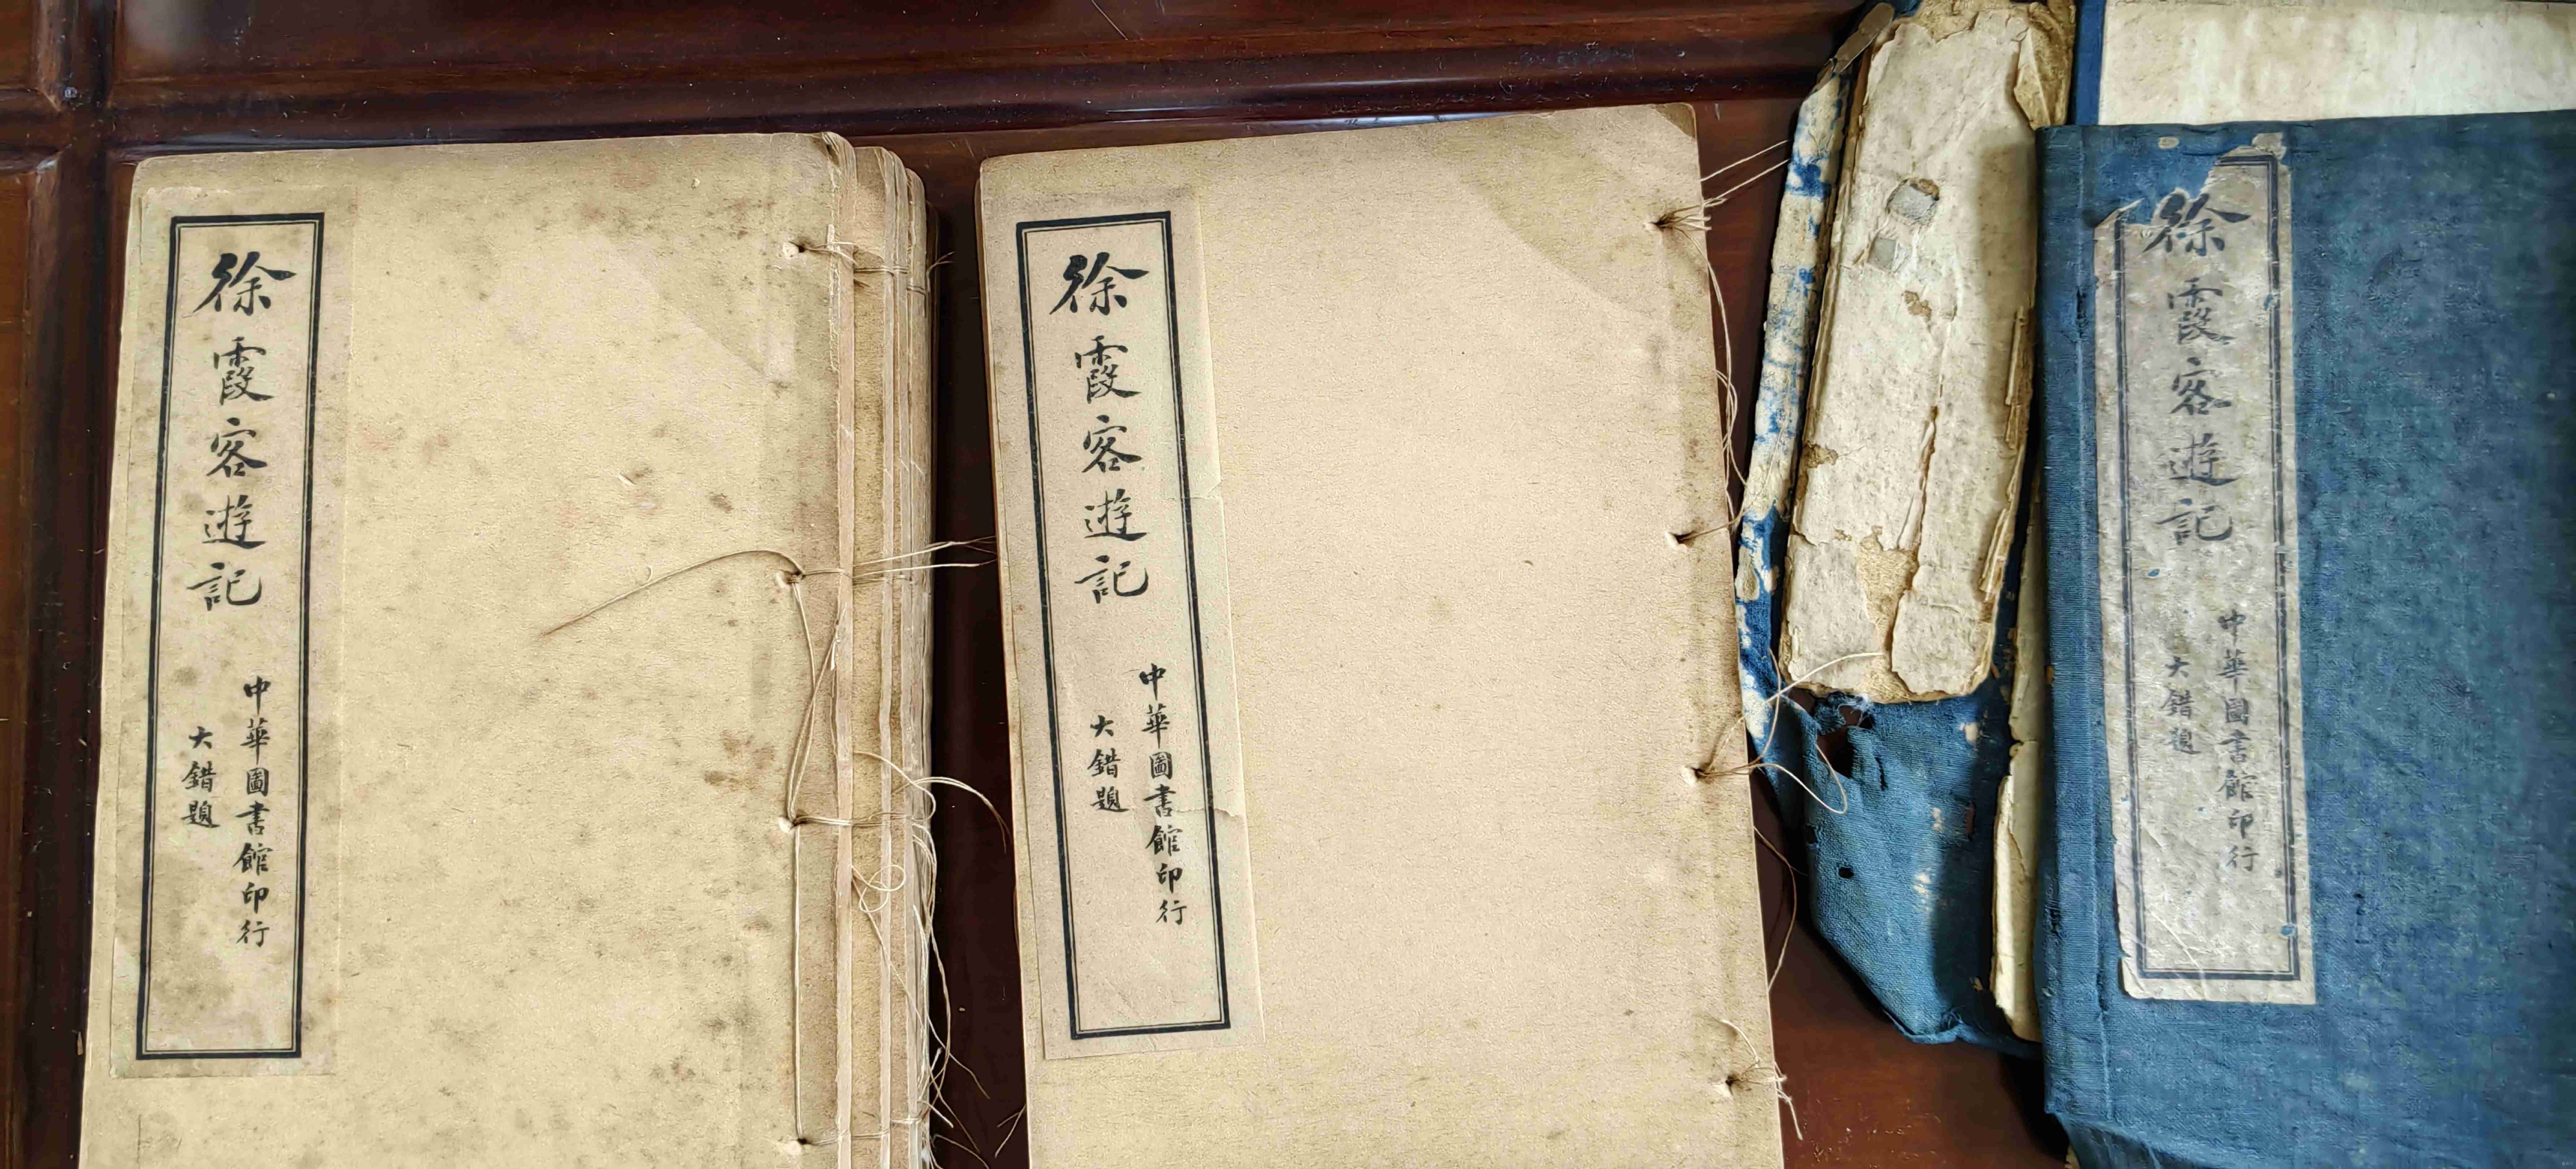 徐霞客遊記
中華圖書館印行
大錯題
徐霞客遊記
中華圖書館印行
大錯題
徐霞客遊記
中華圖書館印行
大錯題